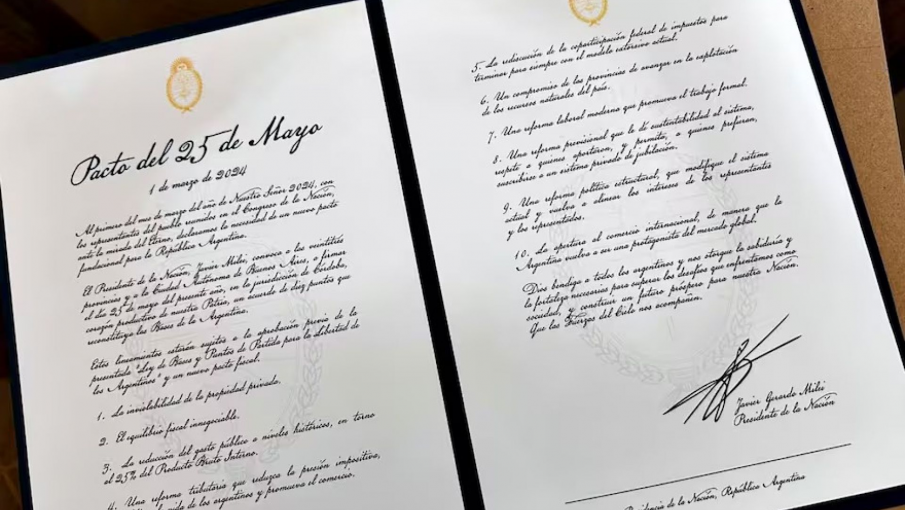 Pacto del 25 de Mayo
1 de marzo de 2024
Al primero del mes de marzo del año de Nuestro Señor 2024, con
los representantes del pueblo reunidos en el Congreso de la Nación,
ante la mirada del Eterno, declaramos la necesidad de un nuevo pacto
fundacional para la República Argentina.
El Presidente de la Nación, Javier Milei, convoca a las veintitrés
provincias y a la Ciudad Autónoma de Buenos Aires, a firmar
el día 25 de mayo del presente año, en la jurisdicción de Córdoba,
corazón productivo de nuestra Patria, un acuerdo de diez puntos que
reconstituya las Bases de la Argentina.
Estos lineamientos estarán sujetos a la aprobación previa de la
presentada "Ley de Bases y Puntos de Partida para la libertad de
los Argentinos" y un nuevo pacto fiscal.
1. La inviolabilidad de la propiedad privada.
2. El equilibrio fiscal innegociable.
3. La reducción del gasto público a niveles históricos, en torno
al 25% del Producto Bruto Interno.
4. Una reforma tributaria que reduzca la presión impositiva,
la vida de los argentinos y promueva el comercio.
5. La rediscusión de la coparticipación federal de impuestos para
terminar para siempre con el modelo extorsivo actual.
6. Un compromiso de las provincias de avanzar en la explotación
de los recursos naturales del país.
7. Una reforma laboral moderna que promueva el trabajo formal.
8. Una reforma previsional que le dé sustentabilidad al sistema,
respete a quienes aportaron, y permita, a quienes prefieran,
suscribirse a un sistema privado de jubilación.
9. Una reforma política estructural, que modifique el sistema
actual y vuelva a alinear los intereses de los representantes
y los representados.
10. La apertura al comercio internacional, de manera que la
Argentina vuelva a ser una protagonista del mercado global.
Dios bendiga a todos los argentinos y nos otorgue la sabiduría y
la fortaleza necesarias para superar los desafíos que enfrentamos como
sociedad, y construir un futuro próspero para nuestra Nación.
Que las Fuerzas del Cielo nos acompañen.
Javier Gerardo Milei
Presidente de la Nación
Presidencia de la Nación, República Argentina